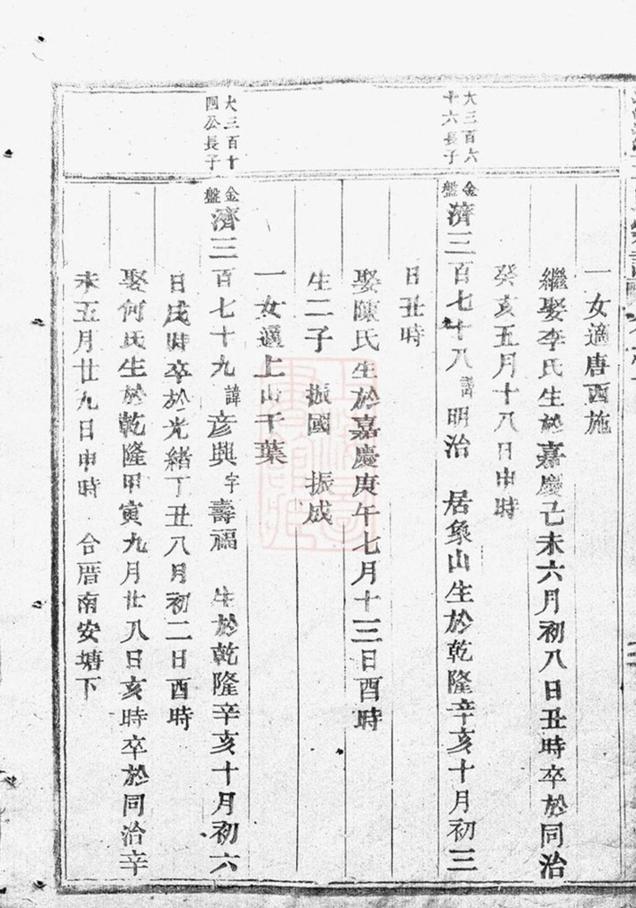 一女適唐西施
繼娶李氏生於嘉慶己未六月初八日丑時卒於同治
癸亥五月十八日申時
大三百六
十六長子
金
盤
濟三百七十八 諱 明治 居象山生於乾隆辛亥十月初三
日丑時
娶陳氏生於嘉慶庚午七月十三日酉時
生二子 振國 振成
一女適上山干葉
大三百十
四公長子
金
盤
濟三百七十九 諱 彦興 字 壽福 生於乾隆辛亥十月初六
日戌時卒於光緒丁丑八月初二日酉時
娶何氏生於乾隆甲寅九月廿八日亥時卒於同治辛
未五月廿九日申時 合厝南安塘下